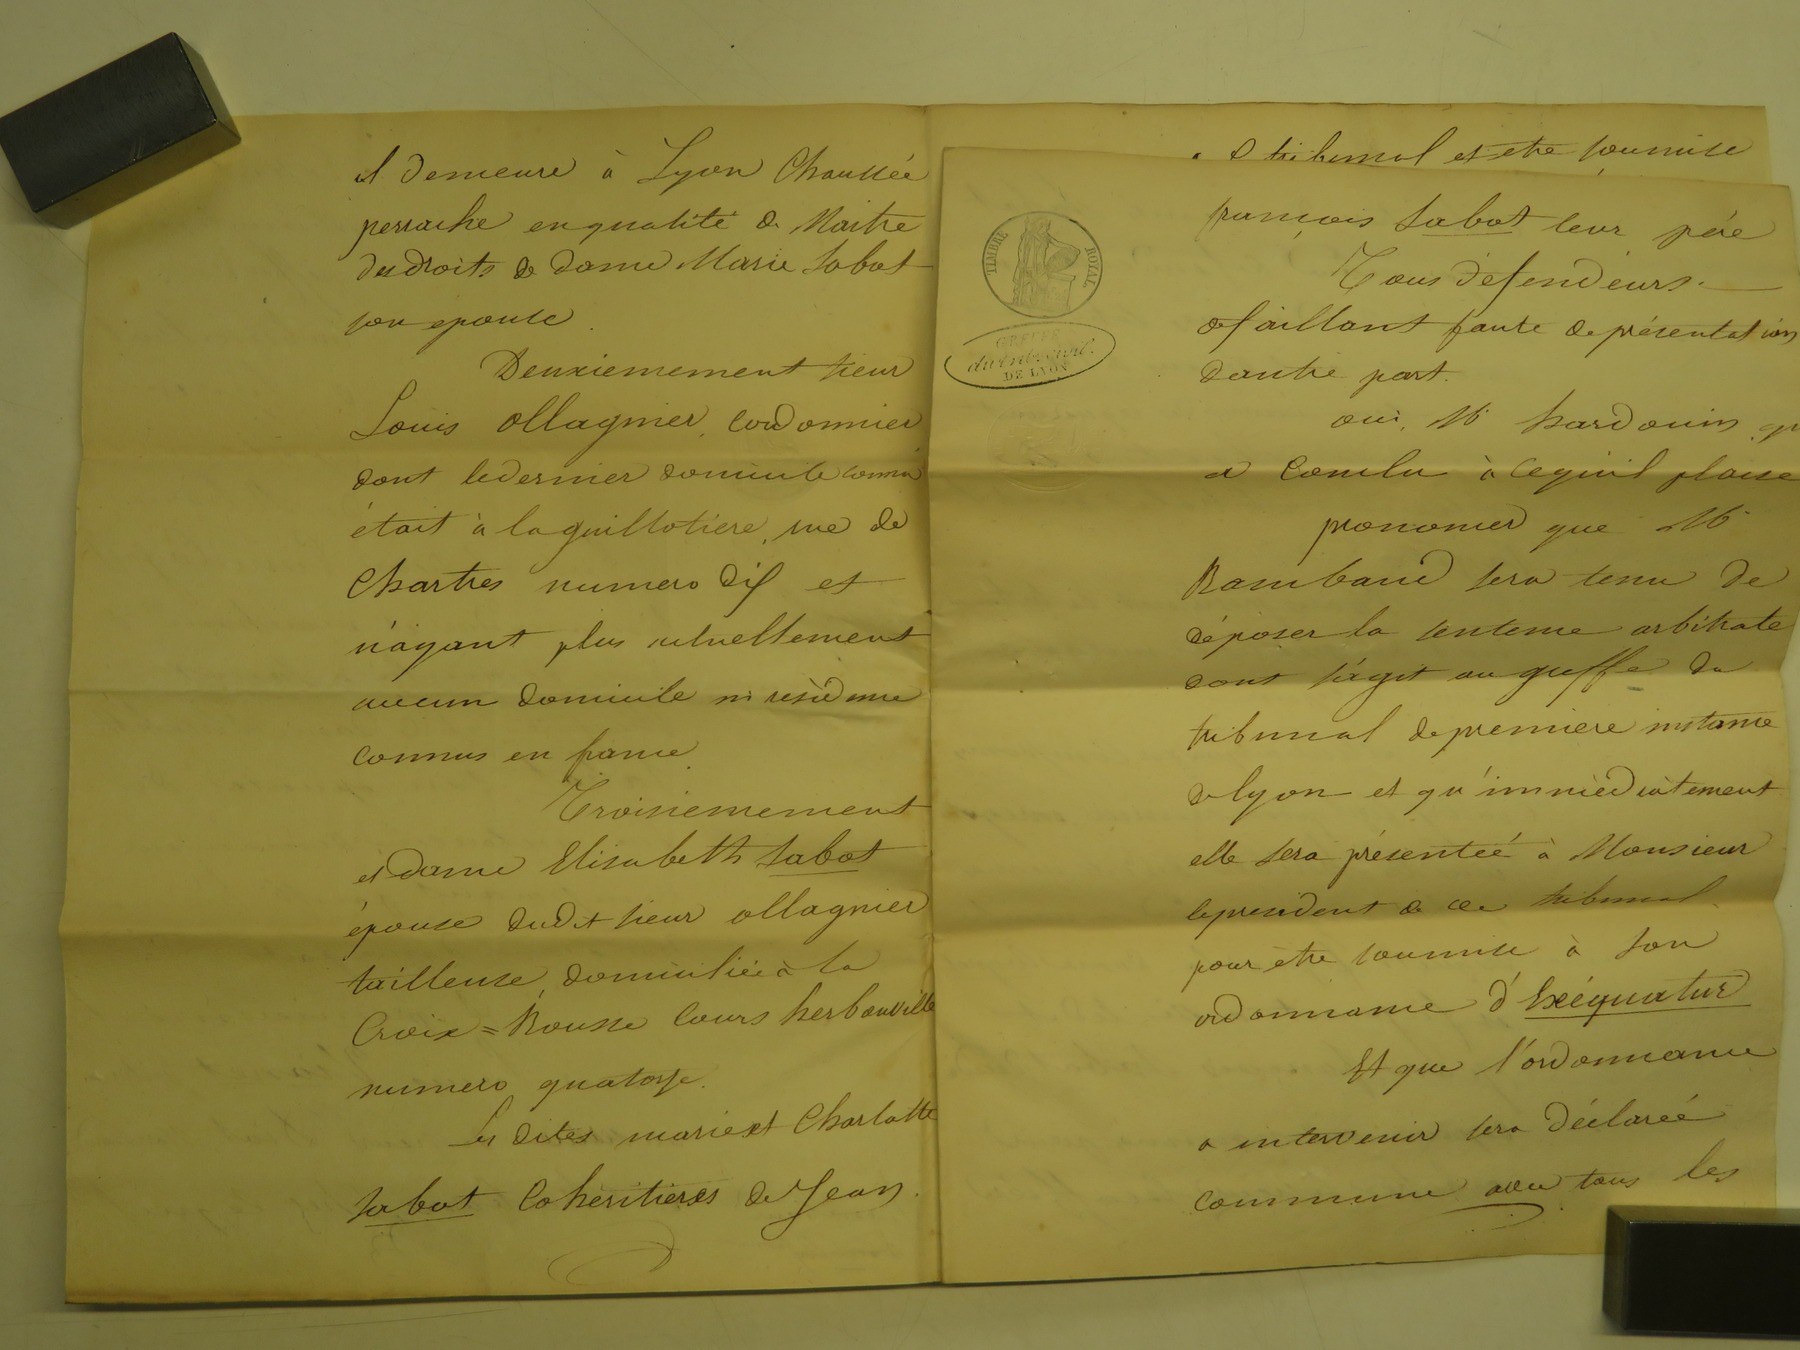 et demeure à Lyon Chaussée
perrache en qualité de Maitre
des droits de dame Marie Sabot
son epouse
Deuxiemement sieur
Louis Ollagnier, cordonnier
dont le dernier domicile connu
était à la guillotiere, rue de
Chartres numero dix et
n'ayant plus actuellement
aucun domicile ni résidence
connus en france.
Troisiemement
et dame Elisabeth Sabot
épouse dudit sieur ollagnier
tailleuse, domiciliée à la
Croix=Rousse Cours herbouville
numero quatorze.
Les dites marie et Charlotte
Sabot Cohéritieres de Jean
tribunal et etre soumise
TIMBRE ROYAL
GREFFE
du trib. civil
DE LYON
françois Sabot leur père
Tous défendeurs.
defaillant faute de présentation
d'autre part.
oui, Me hardouin
a Conclu à cequ'il plaise
prononcer que Me
Rambaud sera tenu de
déposer la sentence arbitrale
dont s'agit au greffe du
tribunal de premiere instance
de lyon et qu'immédiatement
elle sera présentée à Monsieur
le president de ce tribunal
pour être soumise à son
ordonnance d'Exéquatur
Et que l'ordonnance
a intervenir sera déclarée
Commune avec tous les